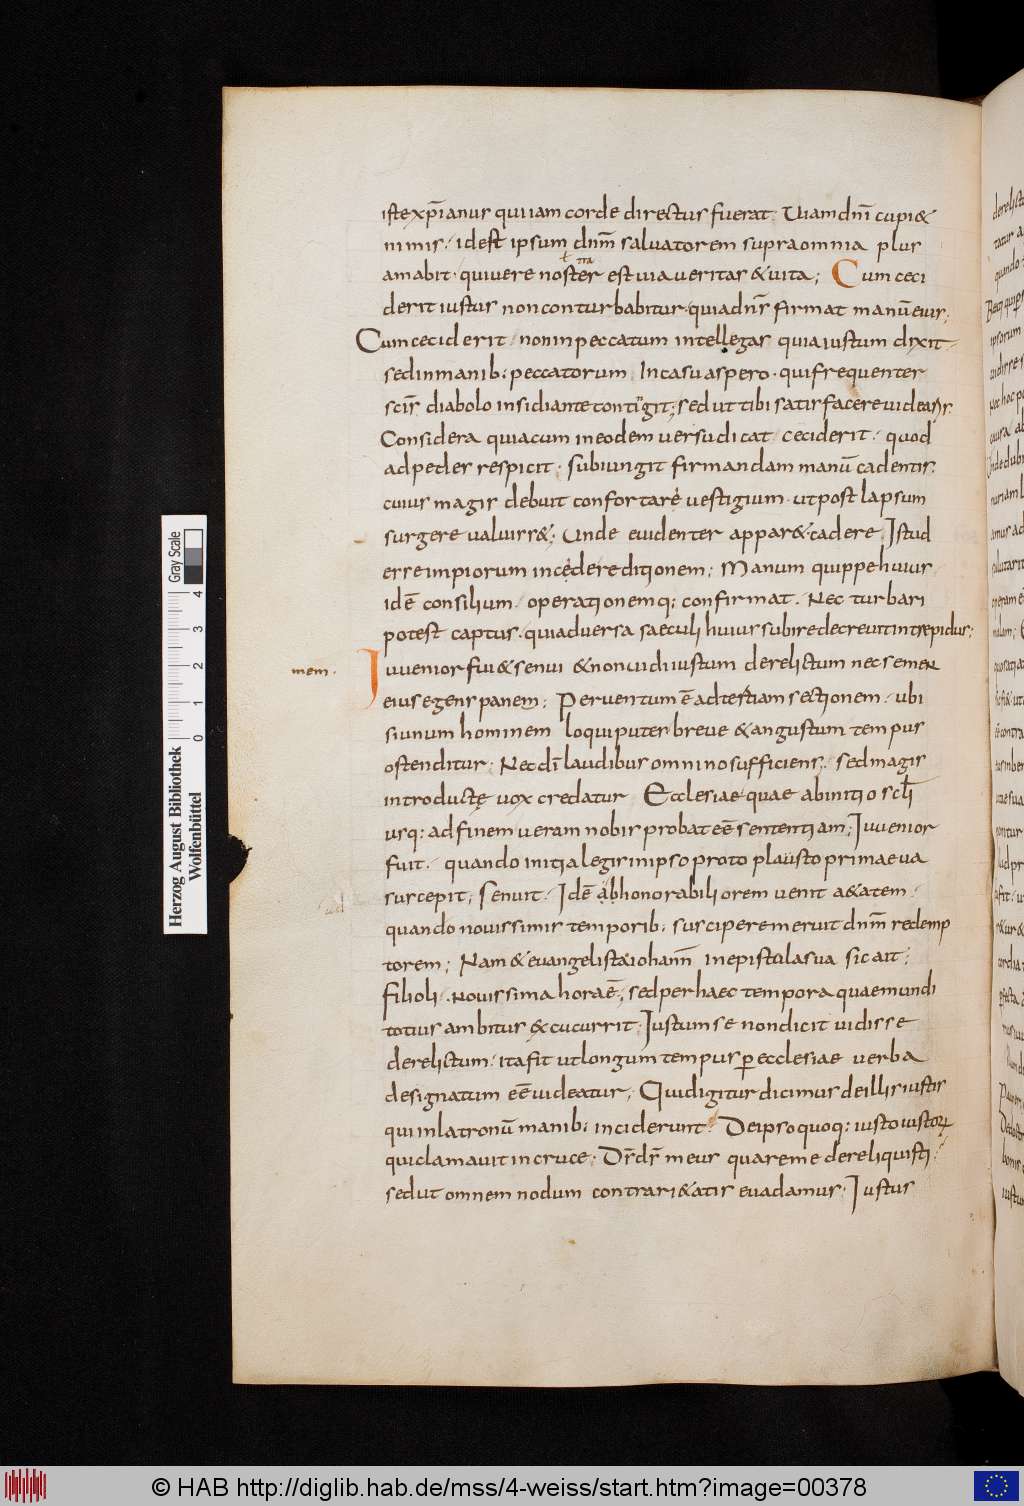 iste xp̄ianus qui iam corde directus fuerat. Uiam dn̄i cupi&
nimis. id est ipsum dnm̄ saluatorem supra omnia plus
amabit. qui uere noster est uia ueritas & uita; Cum ceci
derit iustus non conturbabitur. quia dn̄s firmat manū eius;
Cum ceciderit. non in peccatum intellegas quia iustum dixit
sed in manib; peccatorum. In casu aspero. qui frequenter
scīs diabolo insidiante contigit; sed ut tibi satisfacere uideatis.
Considera quia cum in eodem uersu dicat ceciderit. quod
ad pedes respicit. subiungit firmandam manū cadentis.
cuius magis debuit confortare uestigium. ut post lapsum
surgere ualuiss&. Unde euidenter appar& cadere. Istud
esse impiorum incedere ditionem; Manum quippe huius
idē consilium. operationemq; confirmat. Nec turbari
potest captus. qui aduersa saeculi huius subire decreuit intrepidus;
mem.
Iuuenior fui & senui & non uidi iustum derelictum nec semen
eius egens panem; Peruentum ē ad tertiam sectionem. ubi
si unum hominem loqui putes breue & angustum tempus
ostenditur; Nec dī laudibus omnino sufficiens. sed magis
introductę uox credatur Ecclesiae quae ab initio sclī
usq; ad finem ueram nobis probat eē sententiam; Iuuenior
fuit. quando initia legis in ipso protoplausto primaeua
suscepit; senuit. Idē ab honorabiliorem uenit a&atem.
quando nouissimis temporib; suscipere meruit dnm̄ redemp
torem; Nam & euangelista iohann̄ in epistula sua sic ait;
Filioli. Nouissima hora ē; sed per haec tempora quae mundi
totius ambitus excucurrit. Iustum se non dicit uidisse
derelictum. ita fit ut longum tempus ꝑ ecclesiae uerba
designatum eē uideatur; Quid igitur dicimus de illis iustis
qui in latronū manib; inciderunt. De ipso quoq; iusto iustoꝝ
qui clamauit in cruce. Ds̄ ds̄ meus quare me dereliquisti.
sed ut omnem nodum contrari&atis euadamus. Iustus
Herzog August Bibliothek
Wolfenbüttel
0 1 2 3 4
Gray Scale
© HAB http://diglib.hab.de/mss/4-weiss/start.htm?image=00378